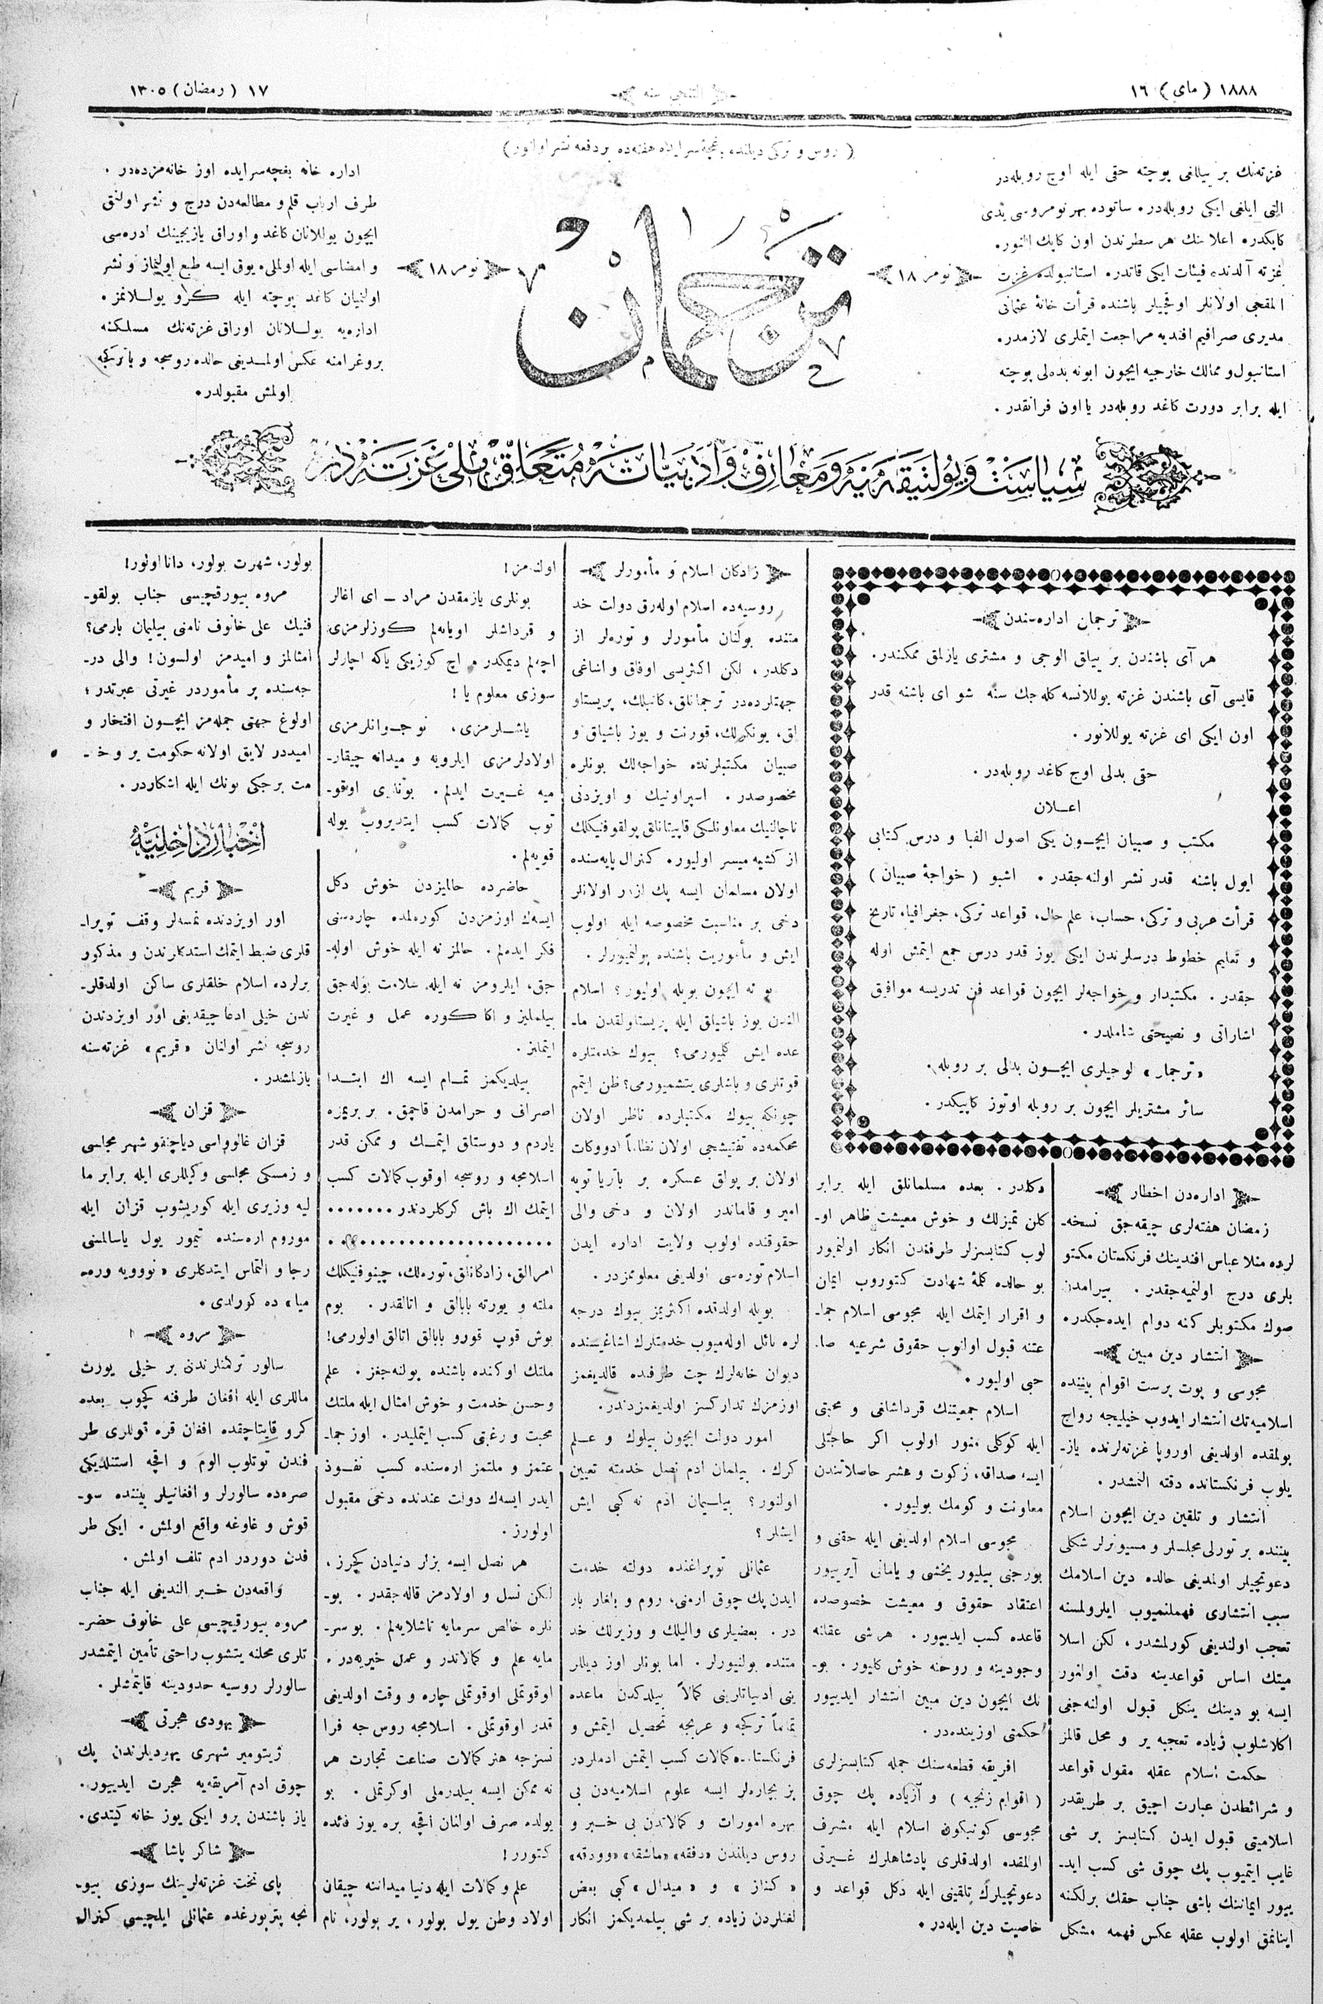 ١٨٨٨ (مای) ١٦
التنجی سنه
١٧ (رمضان) ١٣٠٥
(روس و ترکی دیلنده باغچه‌سرایده هفته‌ده بر دفعه نشر اولنور)
غزته‌نك بر ییللغی پوچته حقی ایله اوچ روبله‌در
التی ایلغی ایکی روبله‌در. ساتوده بهر نومروسی یدی
کاپکدر. اعلانك هر سطرندن اون کاپك النور.
غزته آلدنده فیئات ایکی قاتدر. استانبولده غزت
المقجی اولانلر اوقجیلر باشنده قرأت خانهٔ عثمانی
مدیری صرافیم افندیه مراجعت ایتملری لازمدر.
استانبول و ممالك خارجیه ایچون ابونه بدلی پوچته
ایله برابر دورت کاغد روبله‌در یا اون فرانقدر.
نومر ١٨
ترجمان
نومر ١٨
اداره خانه بغچه‌سرایده اوز خانه‌مزده‌در.
طرف ارباب قلم و مطالعه‌دن درج و نشر اولنمق
ایچون یوللانان کاغد و اوراق یازیجینك ادره‌سی
و امضاسی ایله اولملی. یوق ایسه طبع اولنماز و نشر
اولنمیان کاغد پوچته ایله کرو یوللانمز.
اداره‌یه یوللانان اوراق غزته‌نك مسلکنه
پروغرامنه عکس اولمدیغی حالده روسجه و یا ترکجه
اولمش مقبولدر.
سیاست و پولتیقه‌یه و معارف و ادبیاته متعلق ملی غزته‌در
ترجمان اداره‌سندن
هر آی باشندن بر ییللق الوجی و مشتری یازلمق ممکندر.
قایسی آی باشندن غزته یوللانسه کله‌جك سنه شو ای باشنه قدر
اون ایکی ای غزته یوللانور.
حقی بدلی اوچ کاغد روبله‌در.
اعلان
مکتب و صبیان ایچون یکی اصول الفبا و درس کتابی
ایول باشنه قدر نشر اولنه‌جقدر. اشبو (خواجهٔ صبیان)
قرأت عربی و ترکی، حساب، علم حال، قواعد ترکی، جغرافیا، تاریخ
و تعلیم خطوط درسلرندن ایکی یوز قدر درس جمع ایتمش اوله
جقدر. مکتبدار و خواجه‌لر ایچون قواعد فن تدریسه موافق
اشاراتی و نصیحتی شاملدر.
«ترجمان» لوجیلری ایچون بدلی بر روبله.
سائر مشتریلر ایچون بر روبله اوتوز کاپیکدر.
اداره‌دن اخطار
رمضان هفته‌لری چیقه‌جق نسخه‌ـ
لرده منلا عباس افندینك فرنکستان مکتو
بلری درج اولنمیه‌جقدر. بیرامدن
صوك مکتوبلر کنه دوام ایده‌جکدر.
انتشار دین مبین
مجوسی و پوت پرست اقوام بیننده
اسلامیه‌تك انتشار ایدوب خیلیجه رواج
بولمقده اولدیغی اوروپا غزته‌لرنده یاز
یلوب فرنکستانده دقته المنشدر.
انتشار و تلقین دین ایچون اسلام
بیننده بر تورلی مجلسلر و مسیونرلر شکلی
دعوتجیلر اولمدیغی حالده دین اسلامك
سبب انتشاری فهملنمیوب ایلرولمسنه
تعجب اولندیغی کورلمشدر، لکن اسلا
میتك اساس قواعدینه دقت اولنور
ایسه بو دینك ینکل قبول اولنه‌جغی
اکلاشلوب زیاده تعجبه یر و محل قالمز
حکمت اسلام عقله مقول قواعد
و شرائطدن عبارت اچیق بر طریقدر
اسلامیتی قبول ایدن کتابسز بر شی
غایب ایتمیوب پك چوق شی کسب اید
ییور ایماننك باشی جناب حقك برلکنه
اینانمق اولوب عقله عکس فهمه مشکل
دکلدر. بعده مسلمانلق ایله برابر
کلن تمیزلك و خوش معیشت ظاهر او
لوب کتابسزلر طرفندن انکار اولنمیور
بو حالده کلمهٔ شهادت کتوروب ایمان
و اقرار ایتمك ایله مجوسی اسلام جما
عتنه قبول اولنوب حقوق شرعیه صا
حبی اولیور.
اسلام جمعیتنك قرداشلغی و محبتی
ایله کوکلی منور اولوب اکر حاجتلی
ایسه صداقه، زکوت و هشر حاصلاتندن
معاونت و کومك بولیور.
مجوسی اسلام اولدیغی ایله حقنی و
بورجنی بیلیور یخشی و یامانی آیرییور
اعتقاد حقوق و معیشت خصوصده
قاعده کسب ایدییور. هر شی عقلنه
وجودینه و روحنه خوش کلیور. بو
نك ایچون دین مبین انتشار ایدییور
حکمتی اوزینده‌در.
افریقه قطعه‌سنك جمله کتابسزلری
(اقوام زنجیه) و آزیاده پك چوق
مجوسی کونبکون اسلام ایله مشرف
اولمقده اولدقلری پادشاهلرك غیرتی
دعوتجیلرك تلقینی ایله دکل قواعد و
خاصیت دین ایله‌در.
زادکان اسلام و مأمورلر
روسیه‌ده اسلام اوله‌رق دولت خد
متنده بولنان مأمورلر و توره‌لر از
دکلدر، لکن اکثریسی اوفاق و اشاغی
جهتلرده‌در ترجمانلق، کاتبلك، پریستاو
لق، یونکرلك، قورنت و یوز باشیلق و
صبیان مکتبلرنده خواجه‌لك بونلره
مخصوصدر. اسپراونیك و اویزدنی
ناچالنیك معاونلکی قاپیتانلق پولقوفنیکلك
از کشیه میسر اولیور. کنرال پایه‌سنده
اولان مسلمان ایسه پك ازدر اولانلر
دخی بر مناسبت مخصوصه ایله اولوب
ایش و مأموریت باشنده بولنمیورلر.
بو نه ایچون بویله اولیور؟ اسلام
الندن یوز باشیلق ایله پریستاولقدن ما
عده ایش کلمیورمی؟ بیوك خدمتلره
قوتلری و باشلری یتشمیورمی؟ ظن ایتمم
چونکه بیوك مکتبلرده ناظر اولان
محکمه‌ده تفتیشجی اولان نظاماً ادووکات
اولان بر پولق عسکره بر باتاریا توپه
امیر و قاماندر اولان و دخی والی
حقوقنده اولوب ولایت اداره ایدن
اسلام توره‌سی اولدیغی معلومزدر.
بویله اولدقده اکثریمز بیوك درجه
لره نائل اوله‌میوب خدمتلرك اشاغیسنده
دیوان خانه‌لرك چت طرفنده قالدیغمز
اوزمزك تدارکسز اولدیغمزدندر.
امور دولت ایچون بیلوك و علم
کرك. بیلمان ادم نصل خدمته تعیین
اولنور؟ بیلمیان ادم نه کبی ایش
ایشلر؟
عثمانلی توپراغنده دولته خدمت
ایدن پك چوق ارمنی، روم و بلغار بار
در. بعضیلری والیلك و وزیرلك خد
متنده بولنیورلر. اما بونلر اوز دیللر
ینی ادبیاتلرینی کمالاً بیلدکدن ماعده
تماماً ترکجه و عربجه تحصیل ایتمش و
فرنکستانده کمالات کسب ایتمش ادملردر
بز بیچاره‌لر ایسه علوم اسلامیه‌دن بی
بهره امورات و کمالاتدن بی خبر و
روس دیلندن «دفقه» ماشقه» «وودقه»
«کناز» و «میدال» کبی بعض
لغتلردن زیاده بر شی بیلمدیکمز انکار
اوله‌مز!
بونلری یازمقدن مراد ـ ای اغالر
و قرداشلر اویانه‌لم کوزلرمزی
اچه‌لم دیمکدر. اچ کوزیکی یاکه اچارلر
سوزی معلوم یا!
یاشلرمزی، نوجوانلرمزی
اولادلرمزی ایلرویه و میدانه چیقار
میه غیرت ایدلم. بونلری اوقو
توب کمالات کسب ایتدیروب یوله
قویه‌لم.
حاضرده حالیزدن خوش دکل
ایسه‌ك اوزمزدن کوره‌لمده چاره‌سی
فکر ایده‌لم. حالمز نه ایله خوش اوله
جق، ایلرومز نه ایله سلامت بوله‌جق
بیلملیز و اکا کوره عمل و غیرت
ایتملیز.
بیلدیکمز تمام ایسه اك ابتدا
اصراف و حرامدن قاچمق. بر بریمزه
یاردم و دوستلق ایتمك و ممکن قدر
اسلامجه و روسجه اوقوب کمالات کسب
ایتمك اك باش کرکلردندر.......
امرالق، زادکانلق، توره‌لك، چینوفنیکلك
ملته و یورته بابالق و اتالقدر. بوم
بوش قوپ قورو بابالق اتالق اولورمی!
ملتك اوکنده باشنده بولنه‌جغز. علم
وحسن خدمت و خوش امثال ایله ملتك
محبت و رغبتی کسب ایتملیدر. اوز جما
عتمز و ملتمز اره‌سنده کسب نفوذ
ایدر ایسه‌ك دولت عندنده دخی مقبول
اولورز.
هر نصل ایسه بزلر دنیادن کچرز،
لکن نسل و اولادمز قاله‌جقدر. بو
نلره خالص سرمایه تاشلایه‌لم. بو سر
مایه علم و کمالاندر و عمل خیریه‌در.
اوقوتملی اوقوتملی چاره و وقت اولدیغی
قدر اوقوتملی. اسلامجه روس جه فرا
نسزجه هنر کمالات صناعت تجارت هر
نه ممکن ایسه بیلدرملی اوکرتملی. بو
یولده صرف اولنان اقچه بره یوز فائده
کتورر!
علم و کمالات ایله دنیا میداننه چیقان
اولاد وطن یول بولور، یر بولور، نام
بولور، شهرت بولور، دانا اولور!
مروه بیورقچیسی جناب پولقو
فنیك علی خانوف نامنی بیلمان بارمی؟
امثالمز و امیدمز اولسون! والی در
جه‌سنده بر مأموردر غیرتی عبرتدر؛
اولوغ جهتی جمله‌مز ایچون افتخار و
امیددر لایق اولانه حکومت یر و خـ
مت برجکی بونك ایله اشکاردر.
اخبار داخلیه
قریم
اور اویزدنده نمسه‌لر وقف توپرا
قلری ضبط ایتمك استدکلرندن و مذکور
یرلرده اسلام خلقلری ساکن اولدقلر
ندن خیلی ادعا چیقدیغی اور اویزدندن
روسجه نشر اولنان «قریم» غزته‌سنه
یازلمشدر.
قزان
قزان غالوواسی دیاچنقو شهر مجلسی
و زمسکی مجلسی وکیللری ایله برابر ما
لیه وزیری ایله کوریشوب قزان ایله
موروم اره‌سنده تیمور یول یاسالمسنی
رجا و التماس ایتدکلری «نوویه وره‌
میا» ده کورلدی.
مروه
سالور ترکمنلرندن بر خیلی یورت
ماللری ایله افغان طرفنه کچوب بعده
کرو قایتاچقده افغان قره قوللری طر
فندن توتلوب الوم و اقچه استنلدیکی
صره‌ده سالورلر و افغانیلر بیننده سو
قوش و غاوغه واقع اولمش. ایکی طر
فدن دوردر ادم تلف اولمش.
واقعه‌دن خبر الندیغی ایله جناب
مروه بیورقچیسی علی خانوف حضر
تلری محلنه یتشوب راحتی تأمین ایتمشدر
سالورلر روسیه حدودینه قایتمشلر.
یهودی هجرتی
ژیتومیر شهری یهودیلرندن پك
چوق ادم آمریقه‌یه هجرت ایدییور..
یاز باشندن برو ایکی یوز خانه کیتدی.
شاکر پاشا
پای تخت غزته‌لرینك سوزی بیو
نجه پتربورغده عثمانلی ایلچیسی کنرال